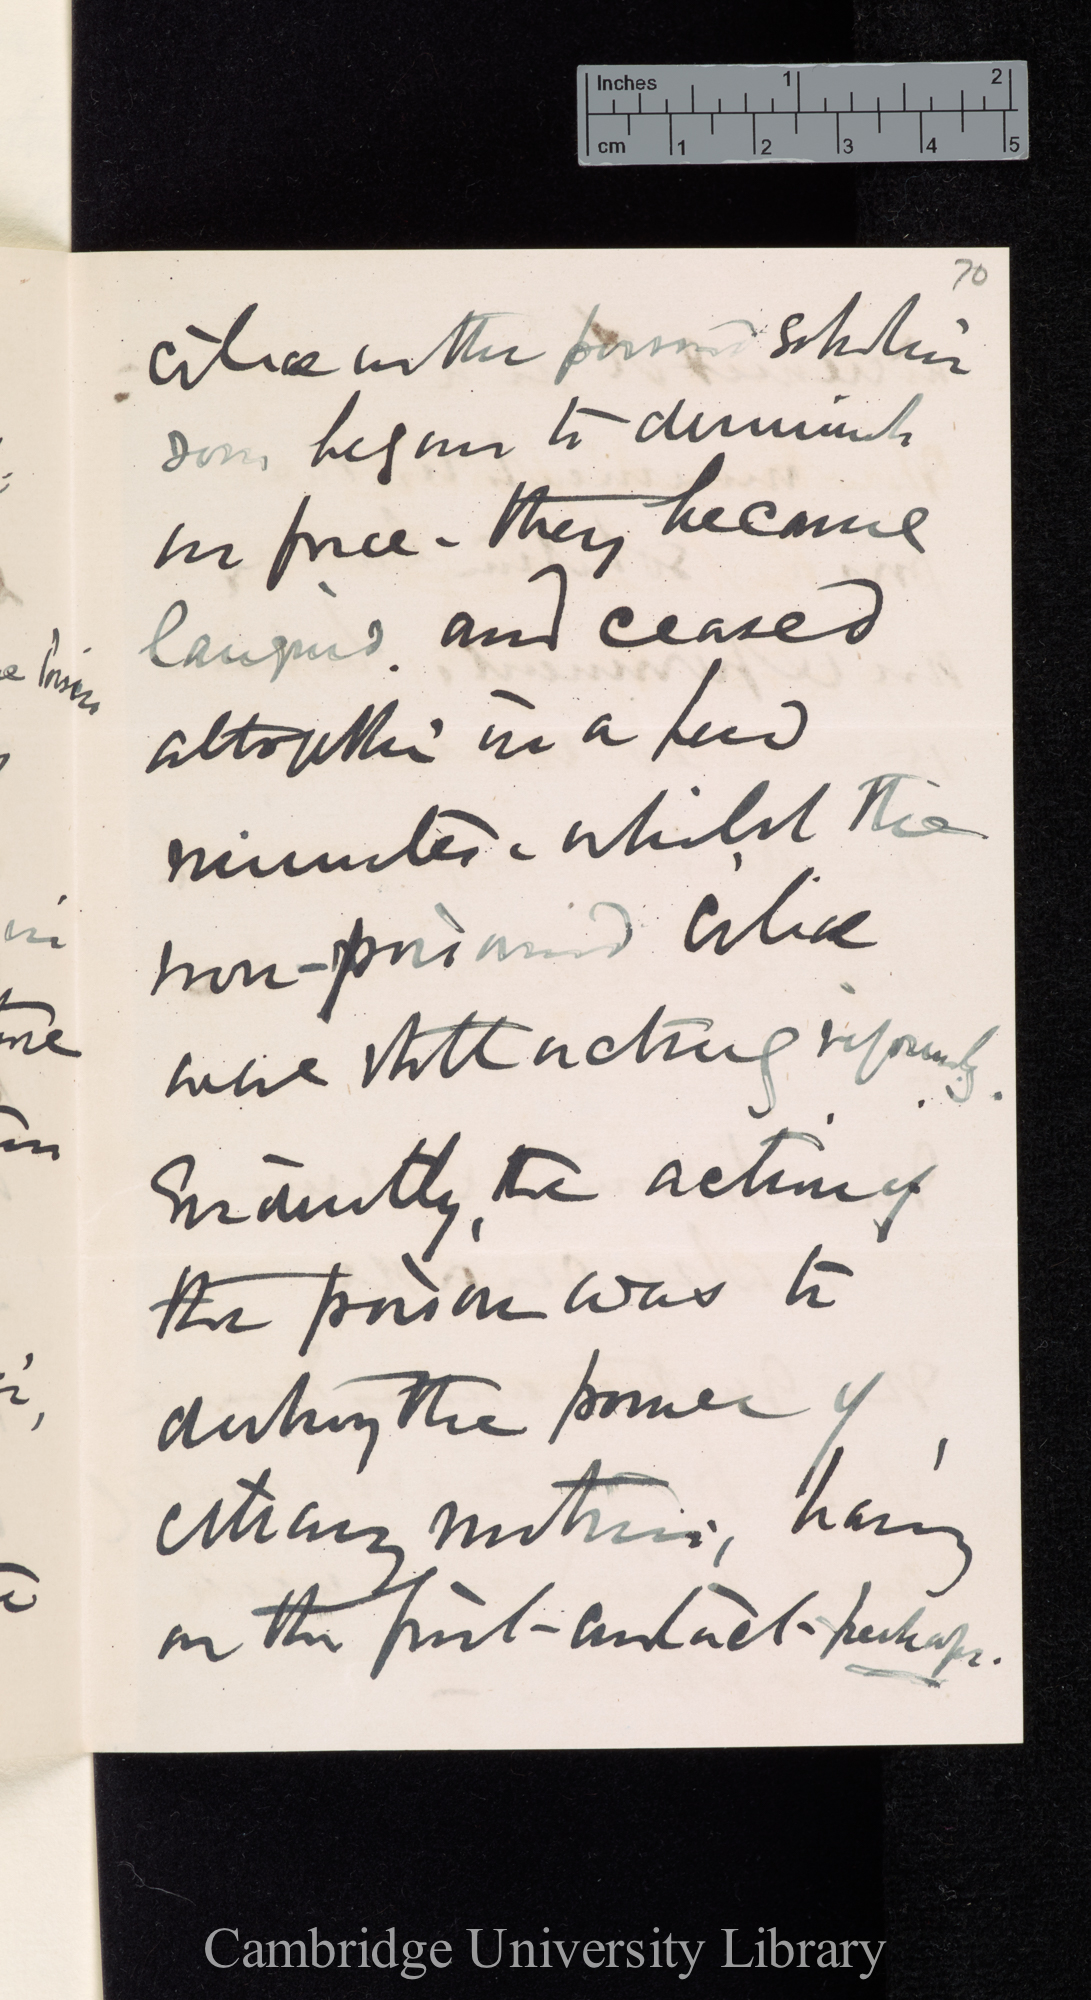 Inches 1 2
cm 1 2 3 4 5
70
cilia in the poison solution
soon began to diminish
in force - they became
languid. and ceased
altogether in a few
minutes. whilst the
non-poisoned cilia
were still acting vigorously.
Evidently, the action of
the poison was to
destroy the power of
ciliary motion, having
in the first-contact-perhaps.
in
Cambridge University Library